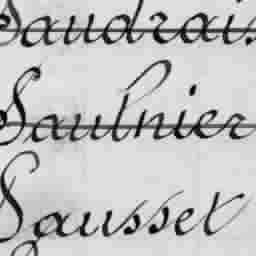 Saudrais
Saulnier
Sausset